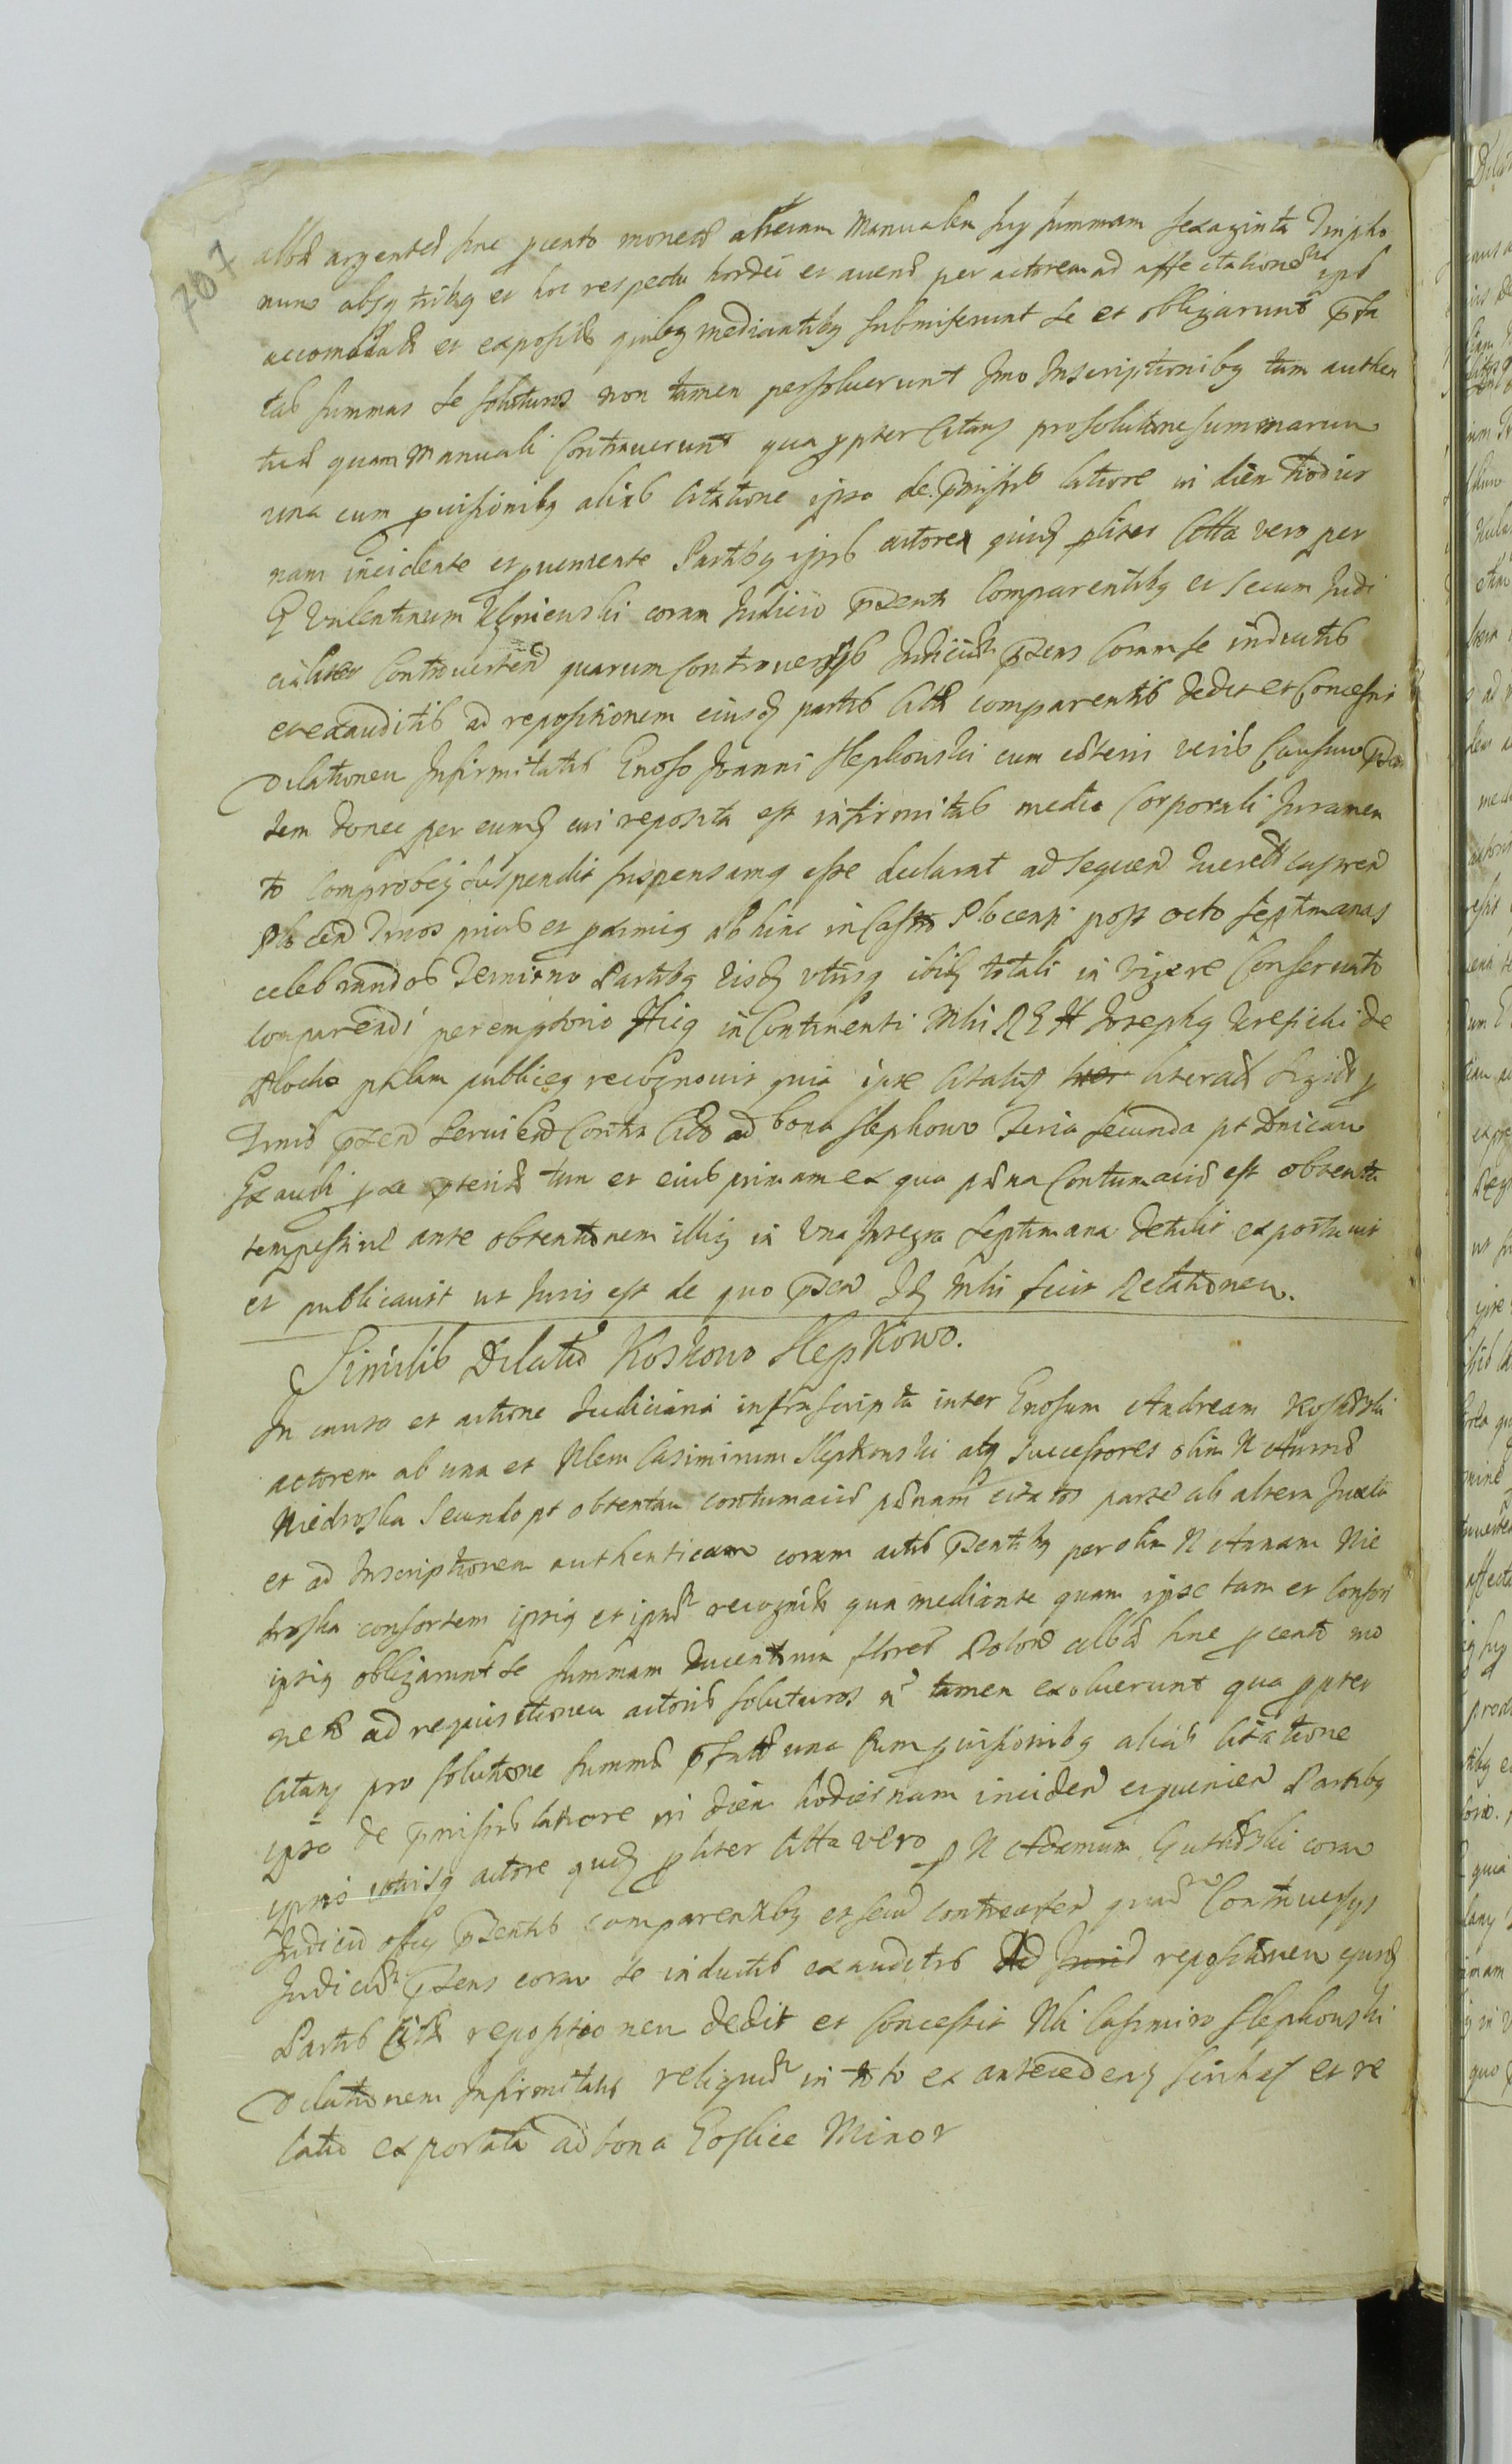 767
albæ argenteæ sine pcento monetæ alteram Manualem sup summam sexaginta Tmpho
num absq tribq et hoc respectu hordei et avenæ per actorem ad affectationem ipsæ
accomodatæ et expositæ quibq mediantibq submiserunt se et obligarunt pfa
tas summas se soluturos non tamen persoluerunt Imo Inscriptionibq tam authen
ticæ quam Manuali Contrauerunt qua ppter Citans pro solutione summarum
una cum puisionibq aliis Citatione ipsa de pmissis latiore in diem hodier
nam incidente et pueniente Partibq ipsis actorea quidq pliter Citta vero per
G Valentinum coram Iudicio psenti Comparentibq et secum Iudi
cialiter Controuerten quarum Controuersys Iudicium psens Coram se inductis
et exauditis ad repositionem eiusdq partis Cittæ comparentis dedit et Concessit
Dilationem Infirmitatis Gnoso Joanni Slepkowski cum cæteris veris Causam psen
tem donec per eumdq cui reposita est infirmitas medio Corporali Iuramen
to Comprobetq suspendit suspensamq esse declarat ad sequen querel castren
Plocen Tmos primos et proximiq ab hinc in Castro Plocensi post octo septimanas
celebrandos Termino Partibq eisdq utrisq ibidq totali in Vigore Conseruato
comparendi peremptorio Hicq in Continenti Mhi R G H Josephq de
Plocko palam publiceq recognouit quia ipse Citatus literas p
Tmis psen seruien Contra Citos ad bona Slepkowo Feria secunda pt Dnicam
Exaudi pxe pterita tum et eius primam ex qua pæna Contumaciæ est obtenta
tempestiue ante obtentionem illiq in Vna Integra septimana detulit exportauit
et publicauit ut Iuris est de quo psen Idq Mhi fecit Relationem.
Similis Dilatio Koskowo Slepkowo.
In causa et actione Iudiciaria infrascripta inter Gnosum Andream
actorem ab una et Nlem Casimirum Slepkowski atq successores olim N Annæ
Niedroska Secundo pt obtentam contumaciæ pænam citatos parte ab altera Iuxta
et ad Inscriptionem authenticam coram actis psentibq per olim N Annam Nie
droska consortem ipsiq et ipsum recognita qua mediante quam ipse tam et consors
ipsiq obligarunt se summam ducentorum flores Polonæ albæ sine pcento mo
netæ ad requisitionem actoris soluturos n tamen exoluerunt qua ppter
Citans pro solutione summæ pfatæ una Cum puisionibq aliis Citatione
ipsa de pmissis latiore in diem hodiernam inciden et puenien Partibq
ipsis utrisq actore quidq pliter Citta vero p N Adamum coram
Iudicio offici psentis comparentibq et secum controuerten quarum Controuersys
Iudicium psens coram se inductis exauditis Ad repositionem eiusdq
Partis Cittæ repositionem dedit et Concessit Nli Casimiro Slepkowski
Dilationem Infirmitatis reliquum in toto ex antecedenq et re
latio exportata ad bona Goslice Minor